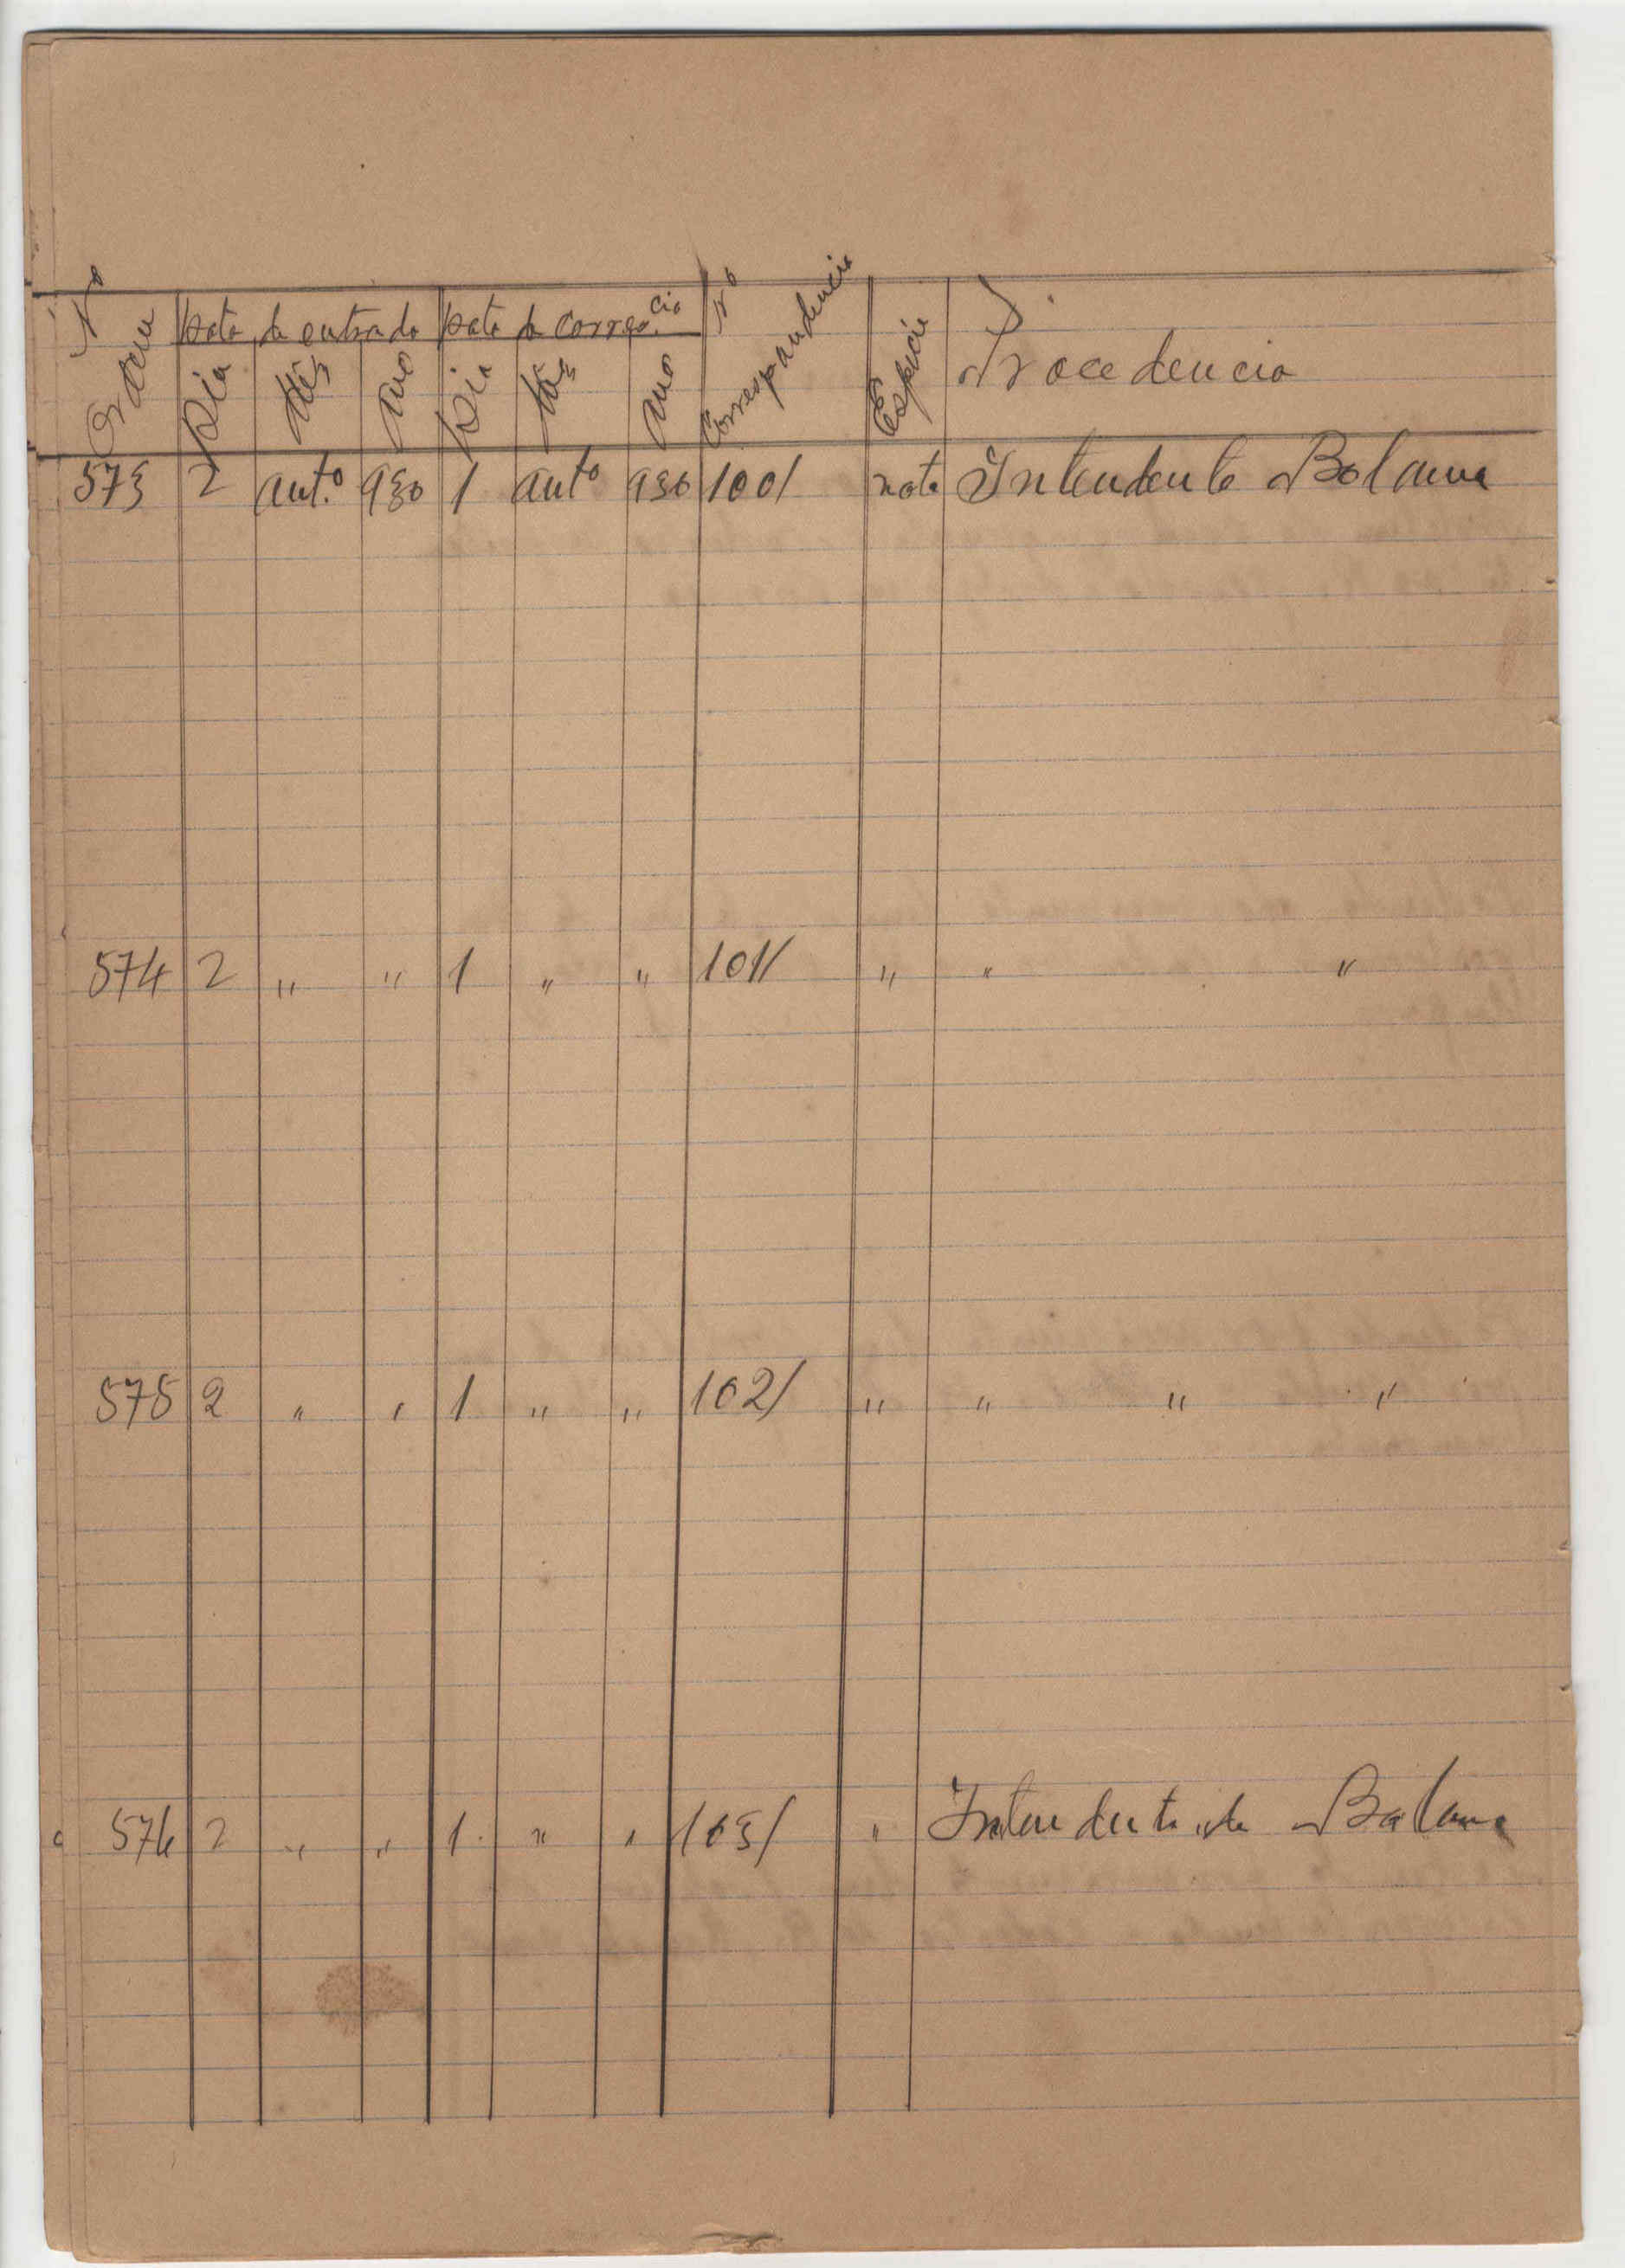 Nº Ordem | Data de entrada | Data da corresp.cia | Nº Correspondencia | Espécie | Procedencia
Dia | Mês | Ano | Dia | Mês | Ano
573 | 2 | aut.º | 930 | 1 | autº | 930 | 100/ | nota | Intendente Bolama
574 | 2 | " | " | 1 | " | " | 101/ | " | " "
575 | 2 | " | " | 1 | " | " | 102/ | " | " " "
576 | 2 | " | " | 1 | " | " | 103/ | " | Intendente de Bolama